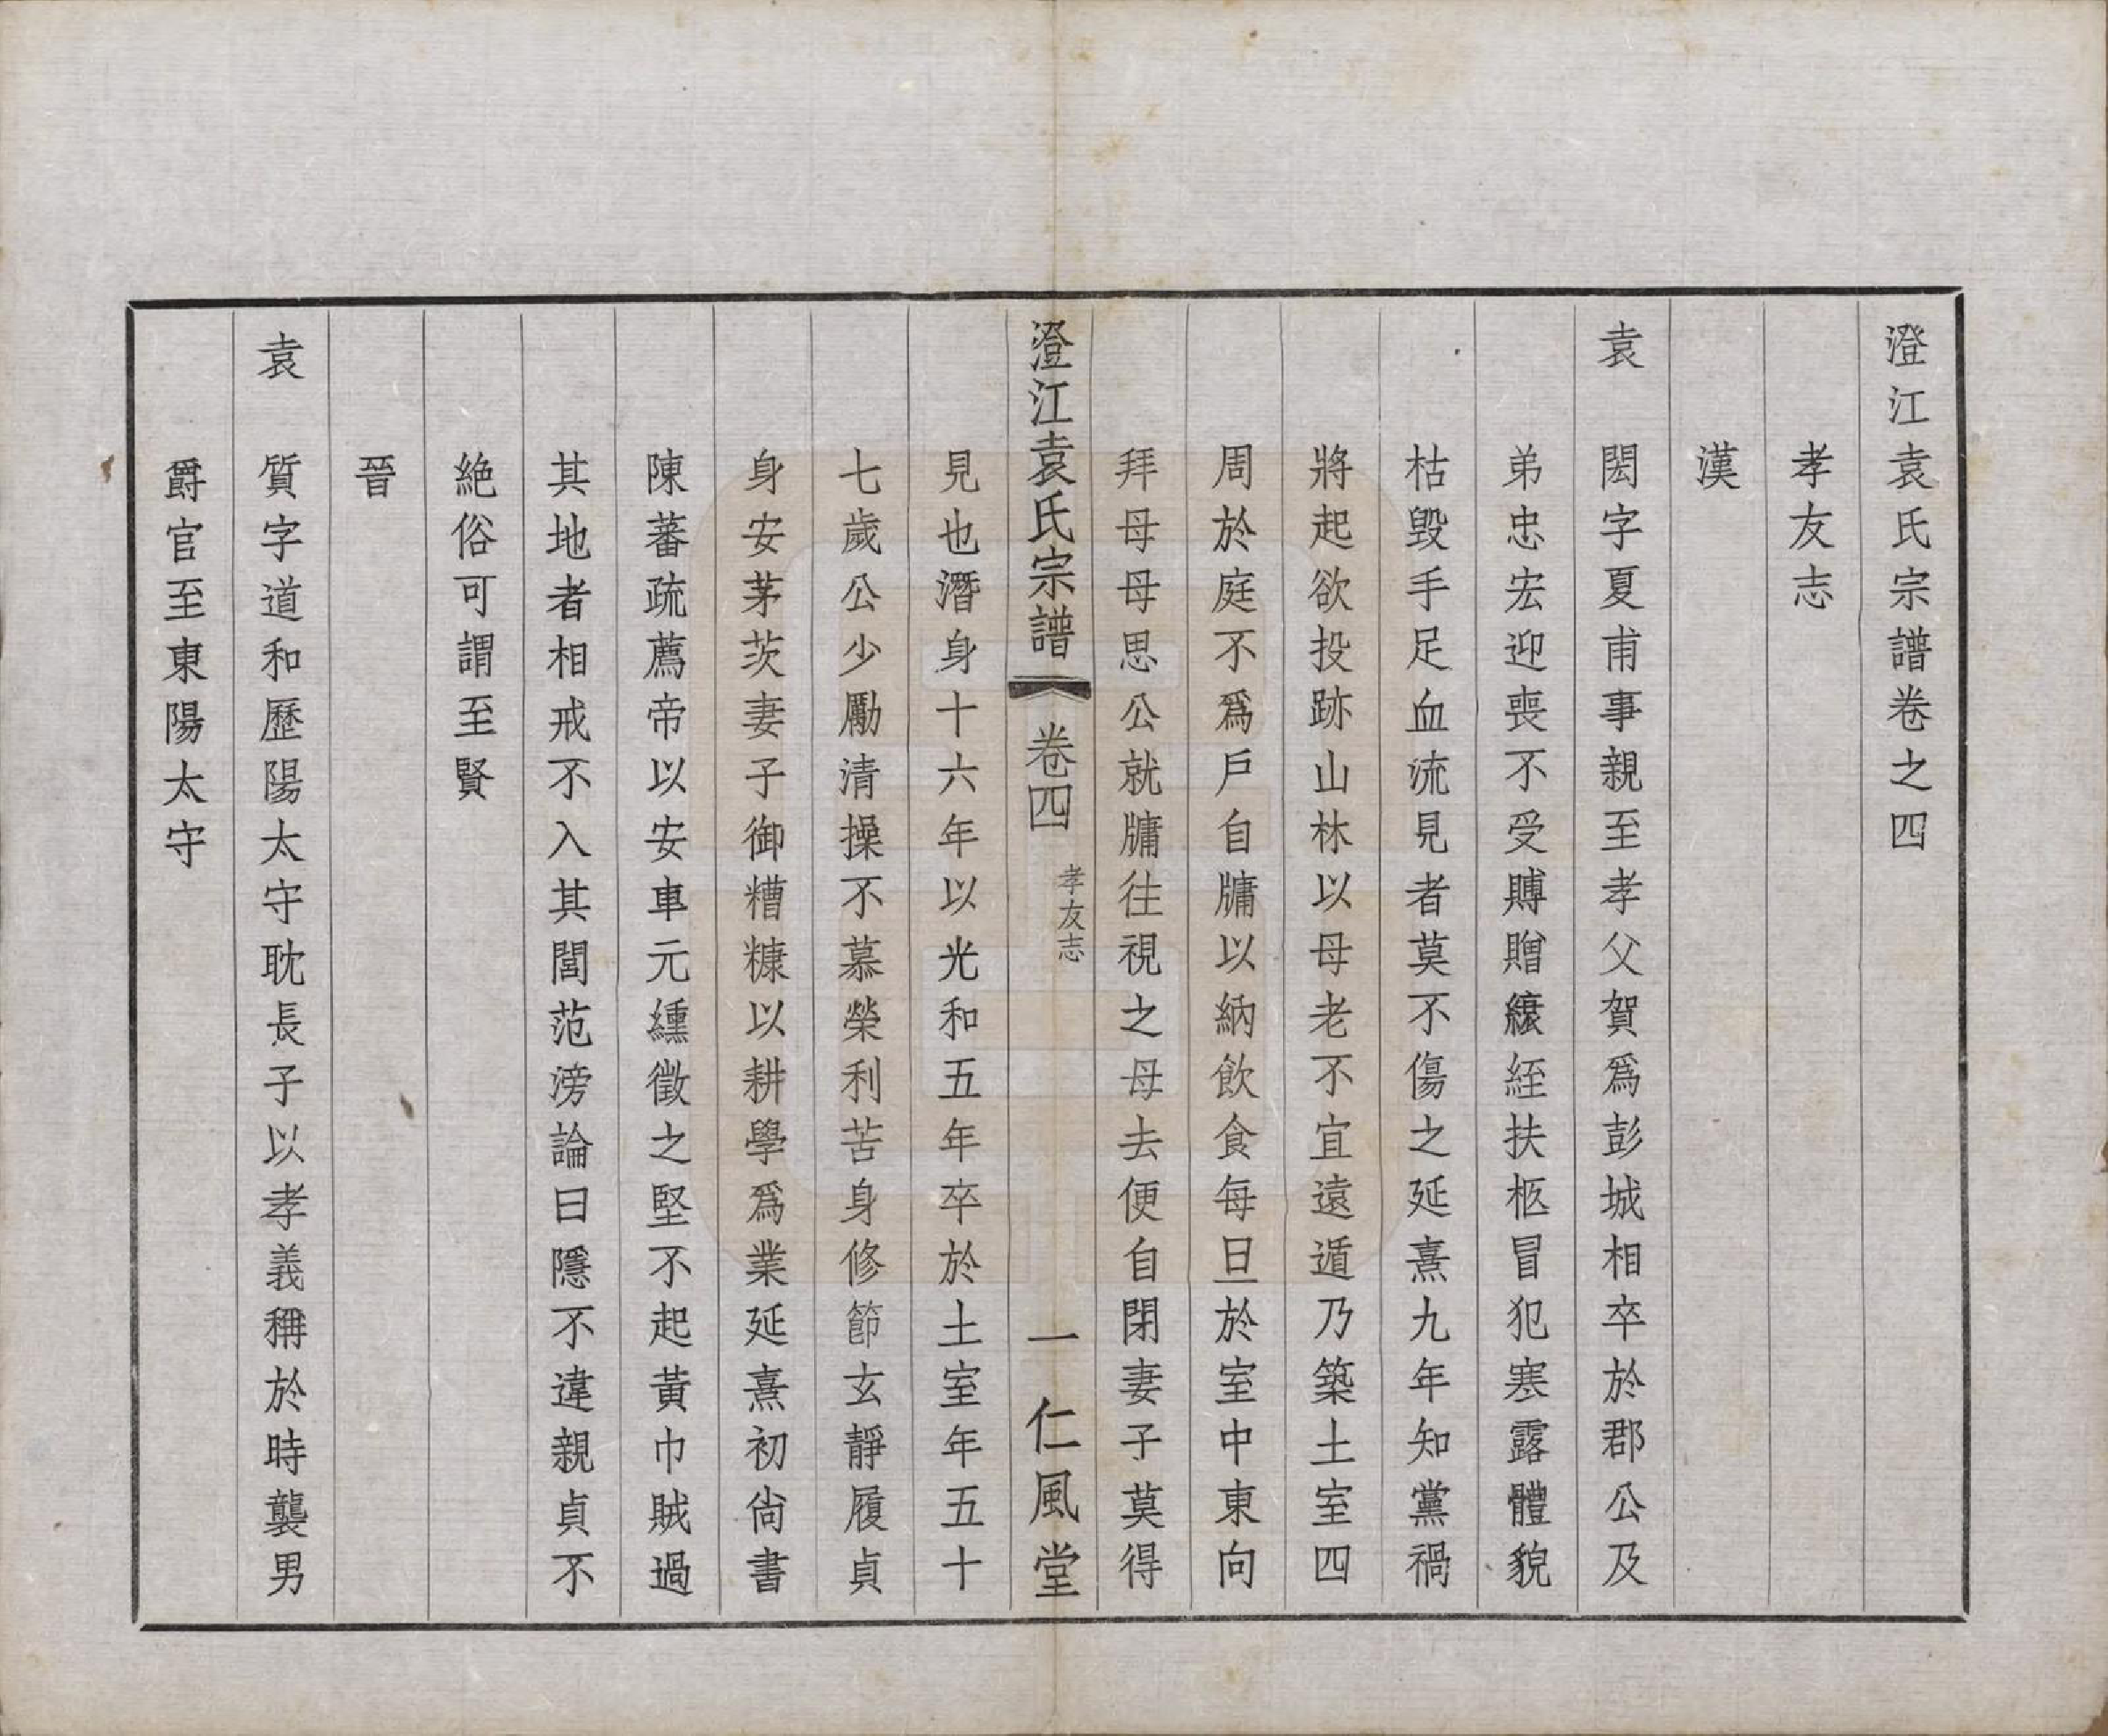 澄江袁氏宗譜卷之四
孝友志
漢
袁　閎字夏甫事親至孝父賀爲彭城相卒於郡公及
弟忠宏迎喪不受賻贈縗絰扶柩冒犯寒露體貌
枯毀手足血流見者莫不傷之延熹九年知黨禍
將起欲投跡山林以母老不宜遠遁乃築土室四
周於庭不爲戶自牖以納飲食每旦於室中東向
拜母母思公就牖往視之母去便自閉妻子莫得
澄江袁氏宗譜　卷四　孝友志　一　仁風堂
見也潛身十六年以光和五年卒於土室年五十
七歲公少勵清操不慕榮利苦身修節玄靜履貞
身安茅茨妻子御糟糠以耕學爲業延熹初尙書
陳蕃疏薦帝以安車元纁徵之堅不起黃巾賊過
其地者相戒不入其閭范滂論曰隱不違親貞不
絶俗可謂至賢
晉
袁　質字道和歷陽太守耽長子以孝義稱於時襲男
爵官至東陽太守